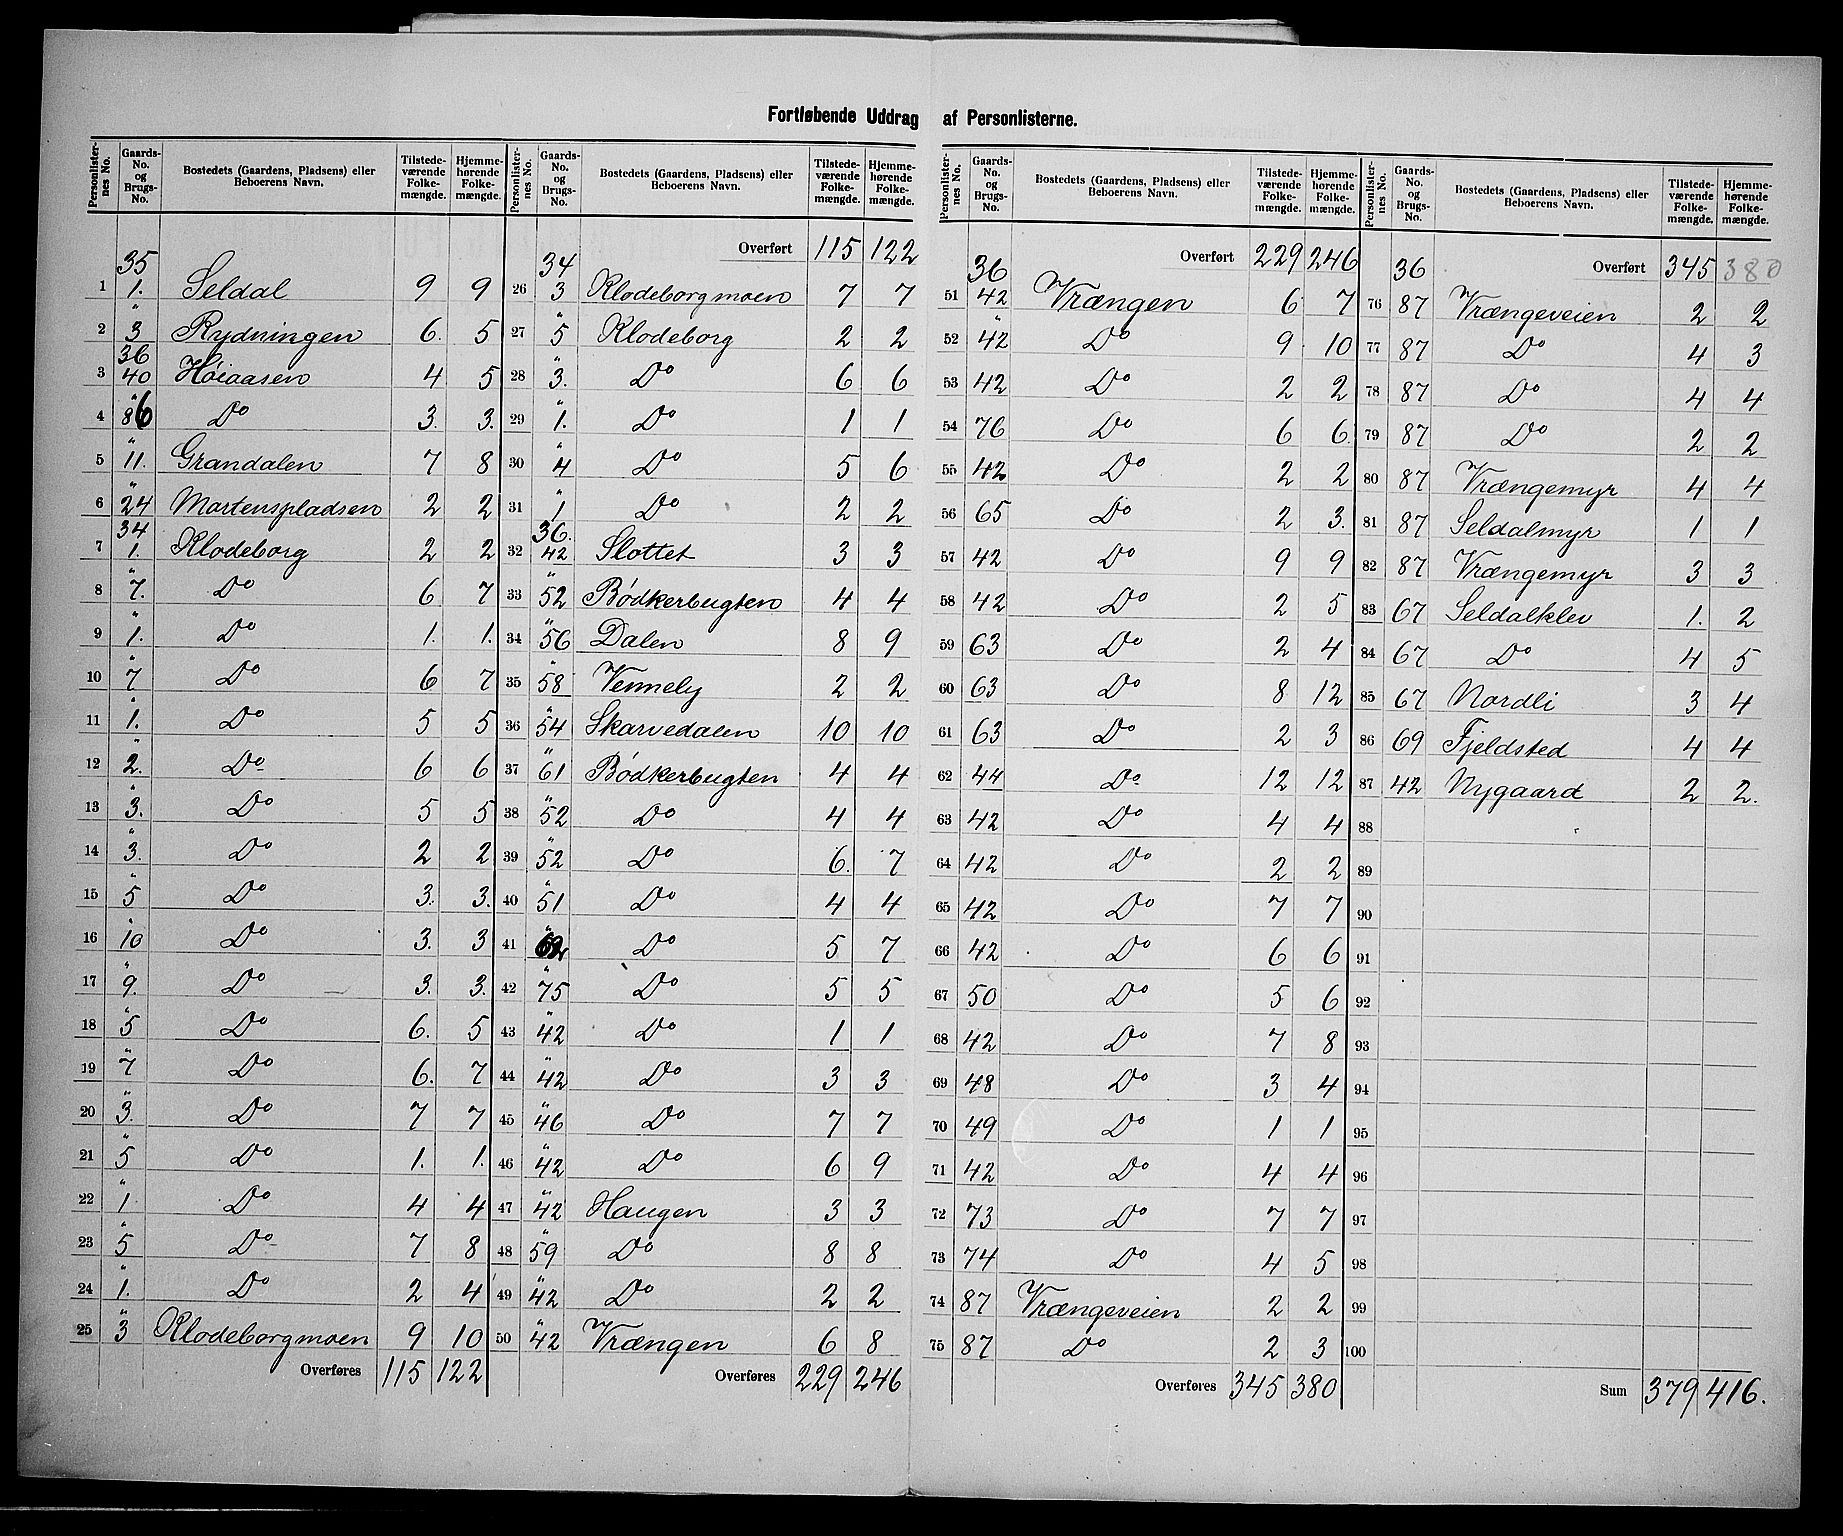 Fortløbende Uddrag af Personlisterne.
Personlister-nes No. | Gaards-No. og Brugs-No. | Bostedets (Gaardens, Pladsens) eller Beboerens Navn. | Tilstede-værende Folke-mængde. | Hjemme-hørende Folke-mængde.
1 35 1. Seldal 9 9
2 " 3 Rydningen 6. 5
3 36 40 Høiaasen 4 5
4 " 86 Do 3. 3.
5 " 11. Grandalen 7 8
6 " 24 Martenspladsen 2 2
7 34 1. Klodeborg 2 2
8 " 7. Do 6. 7
9 " 1. Do 1. 1.
10 " 7 Do 6 7
11 " 1. Do 5 5
12 " 2. Do 6 6
13 " 3. Do 5 5
14 " 3. Do 2 2
15 " 5 Do 3. 3.
16 " 10 Do 3. 3
17 " 9. Do 3. 3.
18 " 5 Do 6. 5
19 " 7 Do 6. 7
20 " 3. Do 7 7
21 " 5 Do 1. 1.
22 " 1. Do 4 4
23 " 5 Do 7 8
24 " 1. Do 2 4
25 " 3 Klodeborgmoen 9 10
Overføres 115 122
Personlister-nes No. | Gaards-No. og Brugs-No. | Bostedets (Gaardens, Pladsens) eller Beboerens Navn. | Tilstede-værende Folke-mængde. | Hjemme-hørende Folke-mængde.
Overført 115 122
26 34 3 Klodeborgmoen 7 7
27 " 5 Klodeborg 2 2
28 " 3. Do 6 6
29 " 1. Do 1 1
30 " 4 Do 5 6
31 " 1 Do 2 2
32 36. 42 Slottet 3 3
33 " 52 Bødkerbugten 4 4
34 " 56 Dalen 8 9
35 " 58 Venneby 2 2
36 " 54 Skarvedalen 10 10
37 " 61 Bødkerbugten 4 4
38 " 52 Do 4 4
39 " 52 Do 6. 7
40 " 51 Do 4 4
41 " Do 5 7
42 " 75 Do 5 5
43 " 42 Do 1 1
44 " 42 Do 3 3
45 " 46 Do 7 7
46 " 42 Do 6 9
47 " 42 Haugen 3 3
48 " 59 Do 8 8
49 " 42 Do 2 2
50 " 42 Vrængen 6 8
Overføres 229 246
Personlister-nes No. | Gaards-No. og Brugs-No. | Bostedets (Gaardens, Pladsens) eller Beboerens Navn. | Tilstede-værende Folke-mængde. | Hjemme-hørende Folke-mængde.
Overført 229 246
51 36 42 Vrængen 6 7
52 " 42 Do 9 10
53 42 Do 2 2
54 76 Do 6 6
55 42 Do 2 2
56 65 Do 2 3.
57 42 Do 9 9
58 42 Do 2 5
59 63 Do 2 4
60 63 Do 8 12
61 63 Do 2 3
62 44 Do 12 12
63 42 Do 4 4
64 42 Do 2 2
65 42 Do 7 7
66 42 Do 6 6
67 50 Do 5 6
68 42 Do 7 8
69 48 Do 3 4
70 49 Do 1 1
71 42 Do 4 4
72 73 Do 7 7
73 74 Do 4 5
74 87 Vrængeveien 2 2
75 87 Do 2 3
Overføres 345 380
Personlister-nes No. | Gaards-No. og Brugs-No. | Bostedets (Gaardens, Pladsens) eller Beboerens Navn. | Tilstede-værende Folke-mængde. | Hjemme-hørende Folke-mængde.
Overført 345 380
76 36 87 Vrængeveien 2 2
77 87 Do 4 3
78 87 Do 4 4
79 87 Do 2 2
80 87 Vrængemyr 4 4
81 87 Seldalmyr 1 1
82 87 Vrængemyr 3 3
83 67 Seldalklev 1. 2
84 67 Do 4 5
85 67 Nordli 3 4
86 69 Fjeldsted 4 4
87 42 Nygaard 2 2.
88
89
90
91
92
93
94
95
96
97
98
99
100
Sum 379 416.